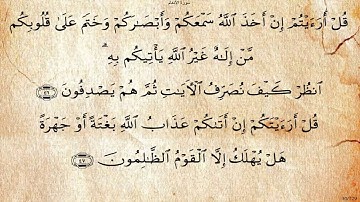 سورة الأنعام
قُلْ أَرَءَيْتُمْ إِنْ أَخَذَ ٱللَّهُ سَمْعَكُمْ وَأَبْصَٰرَكُمْ وَخَتَمَ عَلَىٰ قُلُوبِكُم
مَّنْ إِلَٰهٌ غَيْرُ ٱللَّهِ يَأْتِيكُم بِهِ
ٱنظُرْ كَيْفَ نُصَرِّفُ ٱلْءَايَٰتِ ثُمَّ هُمْ يَصْدِفُونَ ٤٦
قُلْ أَرَءَيْتَكُمْ إِنْ أَتَىٰكُمْ عَذَابُ ٱللَّهِ بَغْتَةً أَوْ جَهْرَةً
هَلْ يُهْلَكُ إِلَّا ٱلْقَوْمُ ٱلظَّٰلِمُونَ ٤٧